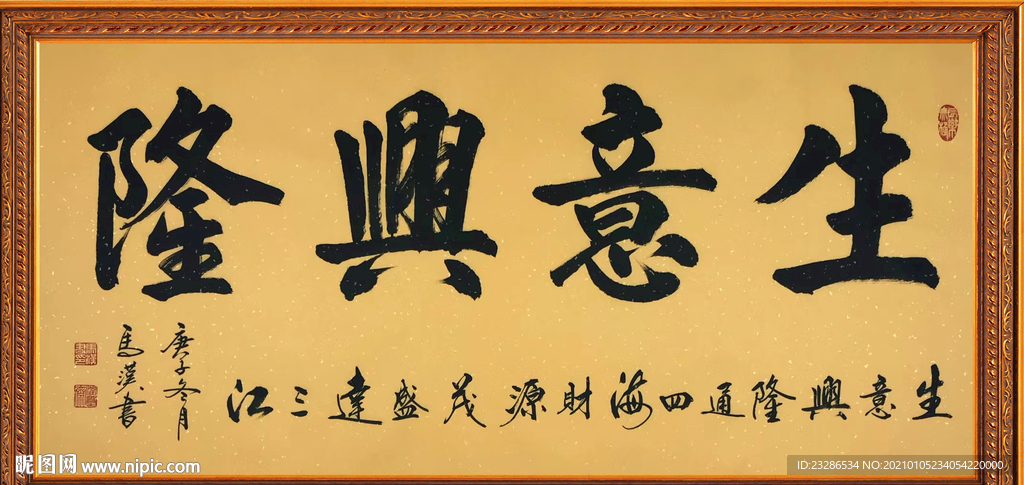 生意興隆
生意興隆通四海財源茂盛達三江
庚子冬月
馬漢書
昵图网 www.nipic.com
ID:23286534 NO:20210105234054220000